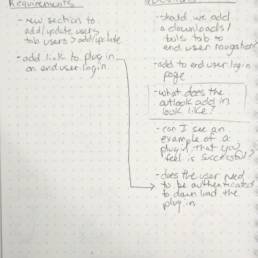 Requirements
- new section to
add/update users
tab users > add/update
- add link to plug in
on end user login
- should we add
a downloads/
tools tab to
end user navigation?
- add to end user login
page
- what does the
outlook add in
look like?
- can I see an
example of a
plugin that you
feel is successful?
- does the user need
to be authenticated
to download the
plugin